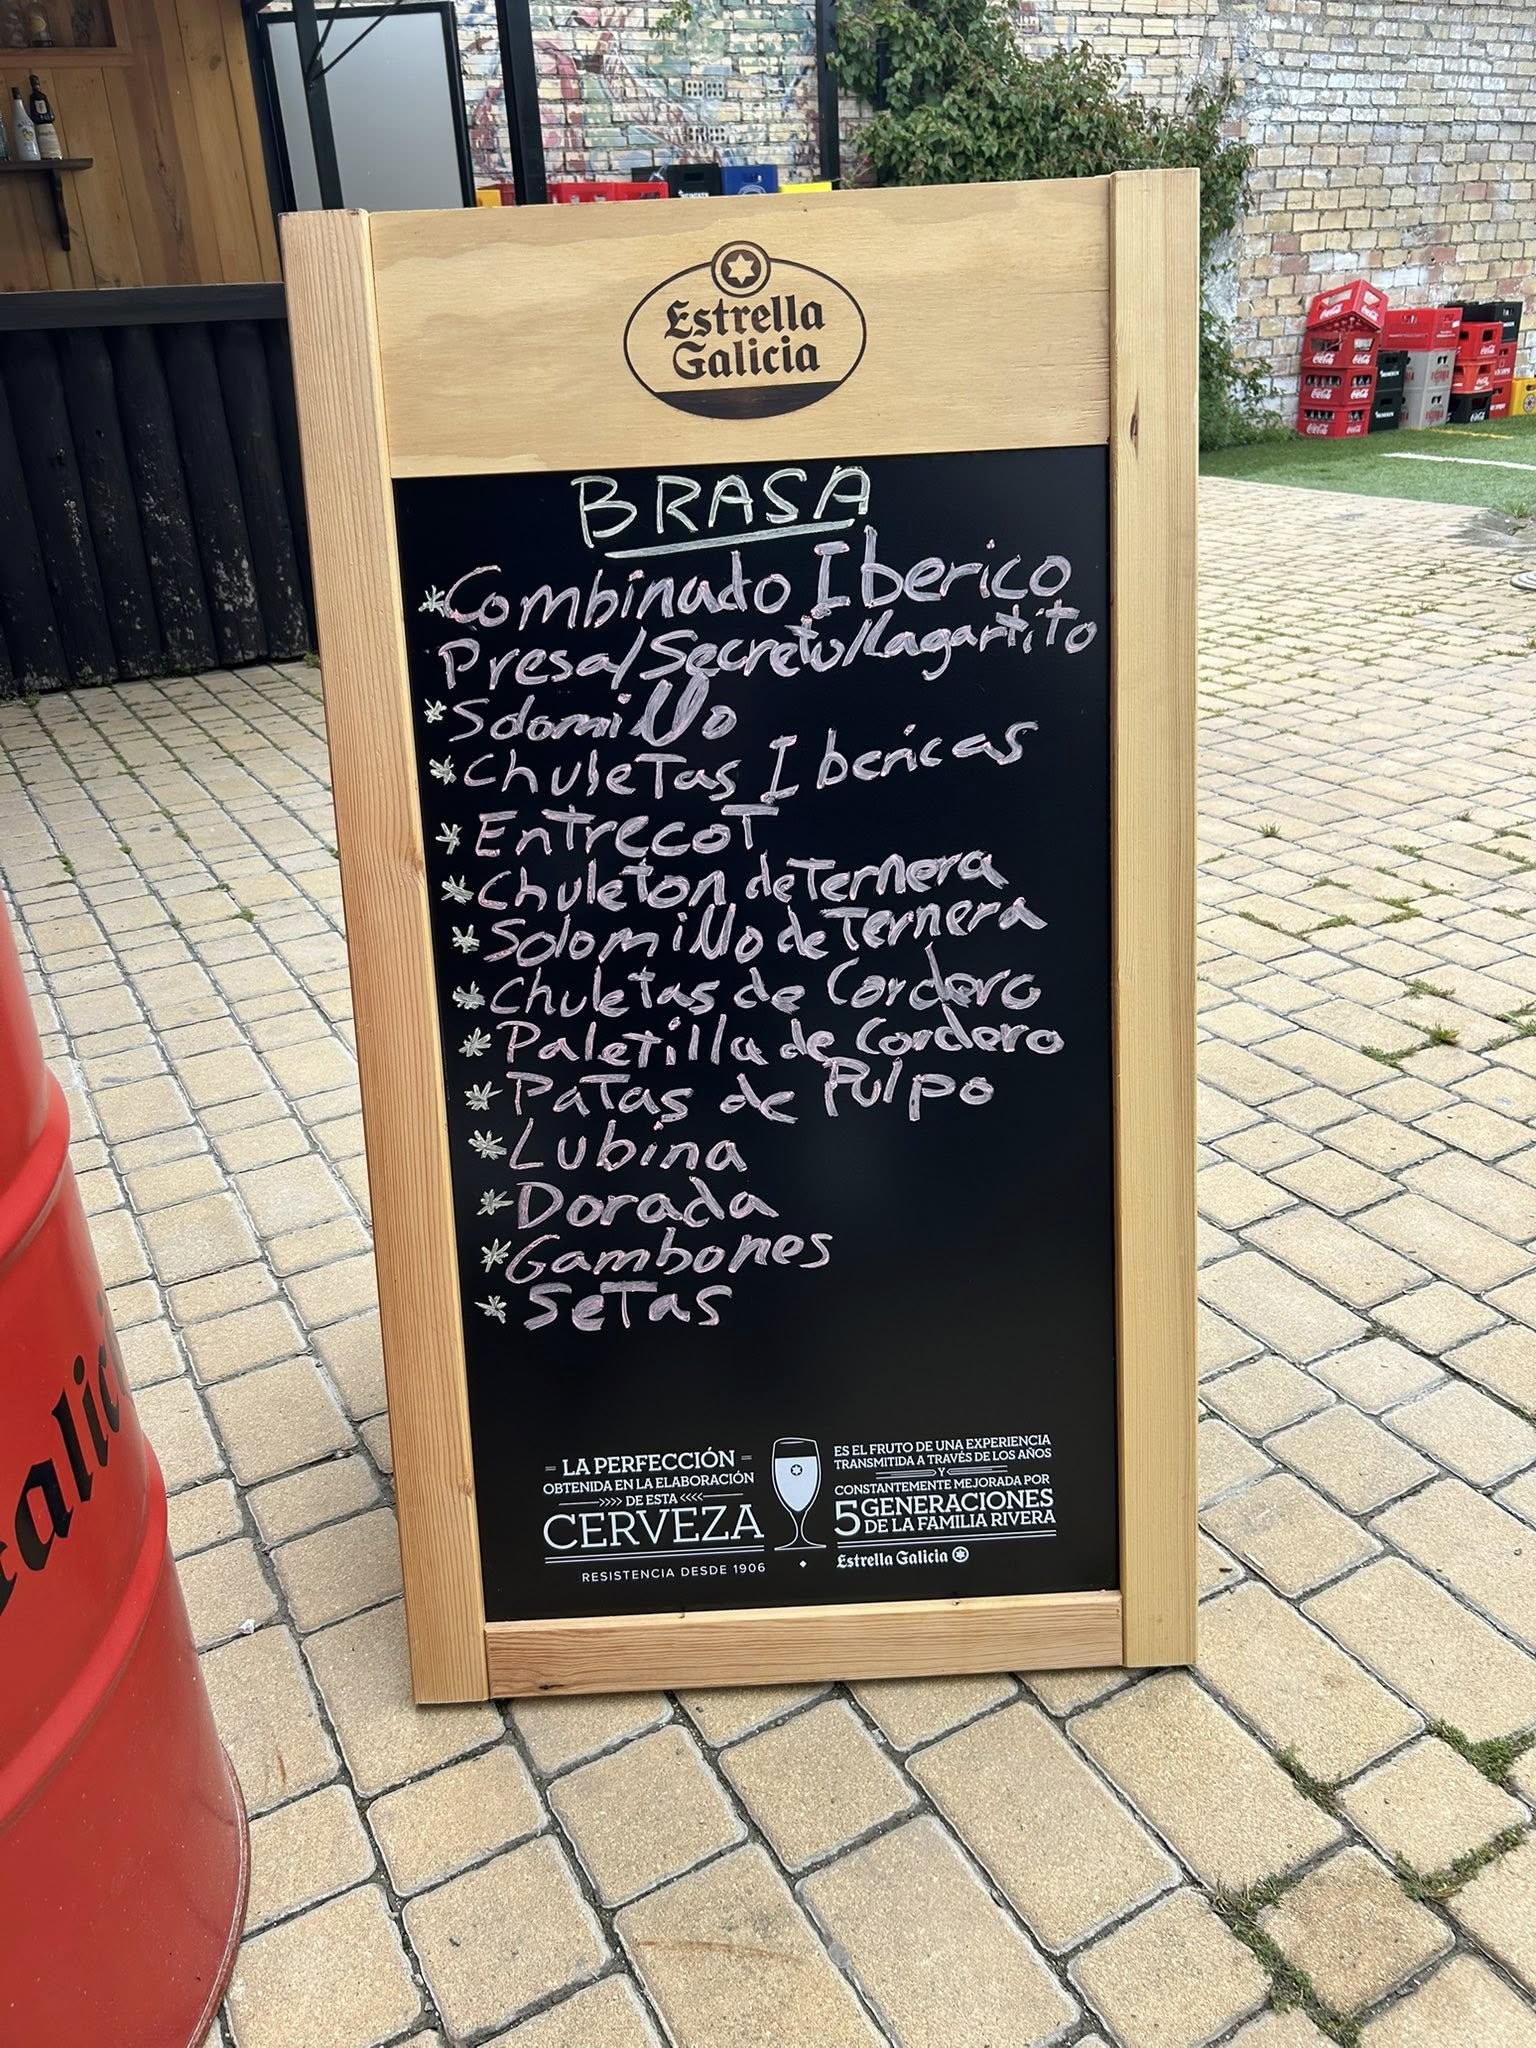 Estrella
Galicia
BRASA
*Combinado Iberico
Presa/Secreto/Lagartito
*Solomillo
*Chuletas Ibericas
*Entrecot
*Chuleton de Ternera
*Solomillo de Ternera
*Chuletas de Cordero
*Paletilla de Cordero
*Patas de Pulpo
*Lubina
*Dorada
*Gambones
*Setas
LA PERFECCIÓN
OBTENIDA EN LA ELABORACIÓN
>>>> DE ESTA <<<<
CERVEZA
RESISTENCIA DESDE 1906
ES EL FRUTO DE UNA EXPERIENCIA
TRANSMITIDA A TRAVÉS DE LOS AÑOS
Y
CONSTANTEMENTE MEJORADA POR
5 GENERACIONES
DE LA FAMILIA RIVERA
Estrella Galicia
Coca-Cola
Coca-Cola
Coca-Cola
Coca-Cola